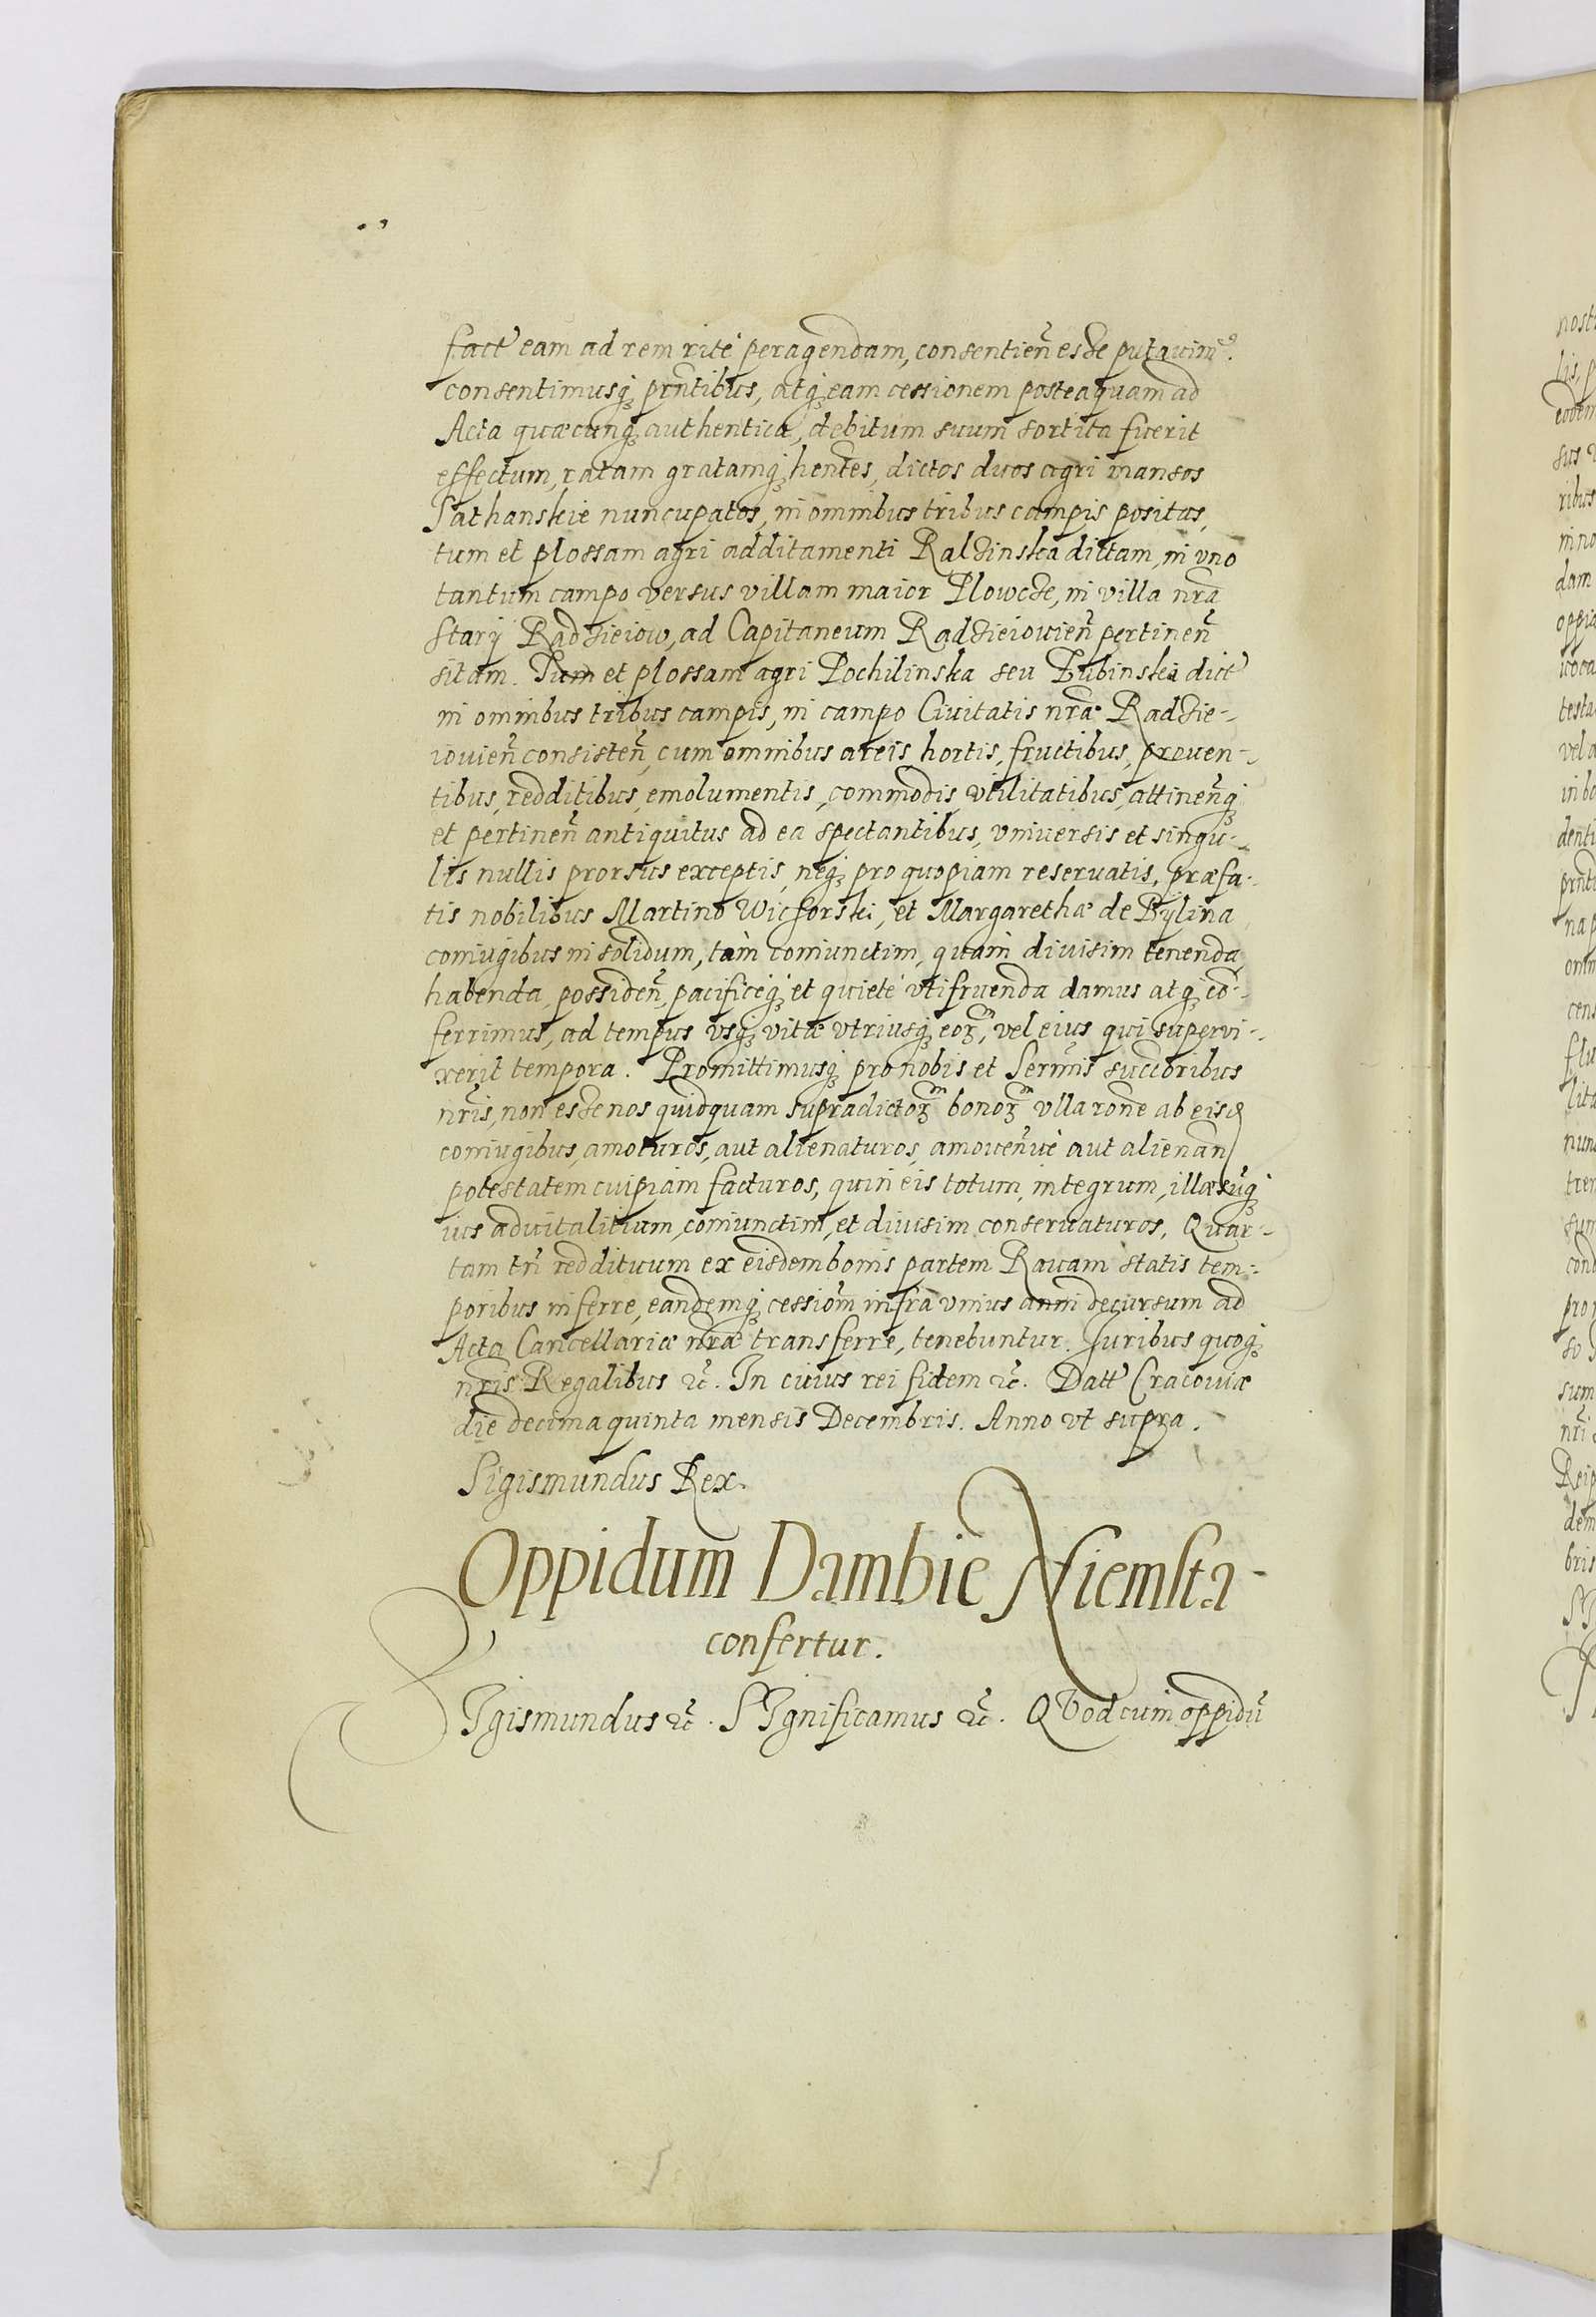 fact eam ad rem rité peragendam, consentien̄ esse putauim⁹.
consentimusq́ꝫ prn̄tibus, atq́ꝫ eam cessionem posteaquam ad
Acta quæcunq́ꝫ authentica, debitum suum sortita fuerit
effectum, ratam gratamq́ꝫ hēntes, dictos duos agri mansos
Sathanskie nuncupatos, in omnibus tribus campis positas,
tum et plossam agri additamenti Ralsinska dictam, in vno
tantum campo versus villam maior Plowcse, in villa nr̄a
Starÿ Radzieiow, ad Capitaneum Radzieiouien̄ pertinen̄
sitam. Tum et plossam agri Pochilinska seu Lubinska dict
in omnibus tribus campis, in campo Ciuitatis nr̄æ Radzie-
iouien̄ consisten̄, cum omnibus areis, hortis, fructibus, prouen-
tibus, redditibus, emolumentis, commodis, vtilitatibus, attinen̄q́ꝫ
et pertinen̄ antiquitus ad ea spectantibus, vniuersis et singu-
lis nullis prorsus exceptis, neq́ꝫ pro quopiam reseruatis, præfa-
tis nobilibus Martino Wichorski, et Margarethæ de Bÿlina
coniugibus in solidum, tàm coniunctim, quàm diuisim tenenda
habenda, possiden̄, pacificeq́ꝫ et quieté vtifruenda damus atq́ꝫ cō-
ferrimus, ad tempus vsq́ꝫ vitæ vtriusq́ꝫ eoꝝ, vel eius qui supervi-
xerit tempora. Promittimusq́ꝫ pro nobis et Serm̄is succ̄oribus
nr̄is, non esse nos quidquam supradictoꝝ bonoꝝ vlla rōne ab eisđ
coniugibus, amoturos, aut alienaturos, amouen̄ue aut alienan̄
potestatem cuipiam facturos, quin eis totum, integrum, illæsūq́ꝫ
ius aduitalitium, coniunctim, et diuisim conseruaturos. Quar-
tam tn̄ reddituum ex eisdem bonis partem Rauam statis tem-
poribus inferre, eandemq́ꝫ cessiōm infra vnius anni decursum ad
Acta Cancellariæ nr̄æ transferre, tenebuntur. Juribus quoq́ꝫ
nr̄is Regalibus ꝛc̄. In cuius rei fidem ꝛc̄. Datt Cracouiæ
die decima quinta mensis Decembris. Anno vt supra.
Sigismundus Rex.
Oppidum Dambie Niemsta-
confertur.
SIgismundus ꝛc̄. SIgnificamus ꝛc̄. QVod cum oppidū